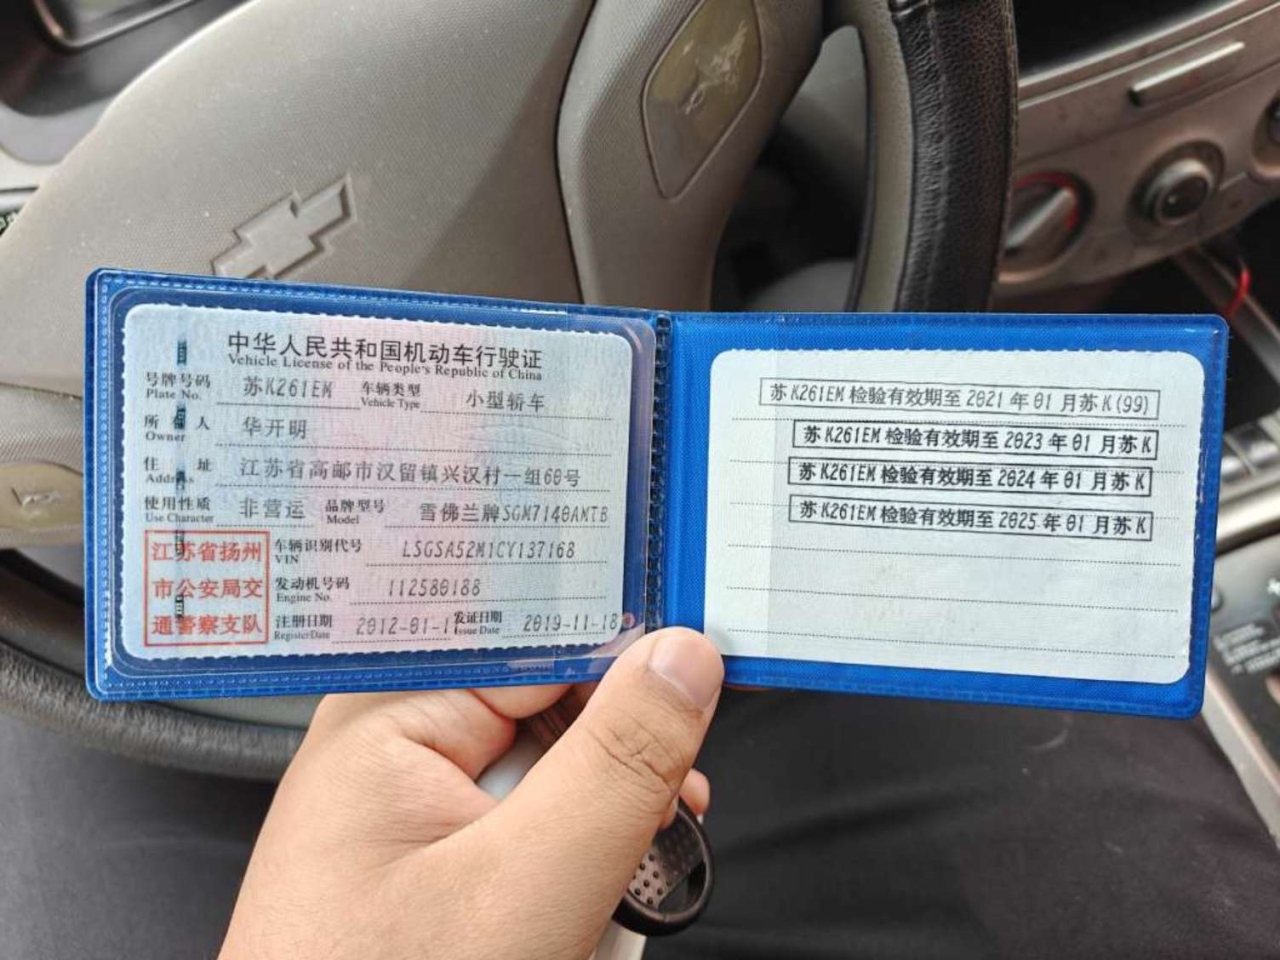 中华人民共和国机动车行驶证
Vehicle License of the People's Republic of China
号牌号码 苏K261EM 车辆类型 小型轿车
Plate No. Vehicle Type
所有人 华开明
Owner
住址 江苏省高邮市汉留镇兴汉村一组60号
Address
使用性质 非营运 品牌型号 雪佛兰牌SGM7140AMTB
Use Character Model
江苏省扬州
市公安局交
通警察支队
车辆识别代号 LSGSA52M1CY137168
VIN
发动机号码 112580188
Engine No.
注册日期 2012-01-1 发证日期 2019-11-18
Register Date Issue Date
苏K261EM检验有效期至2021年01月苏K(99)
苏K261EM检验有效期至2023年01月苏K
苏K261EM检验有效期至2024年01月苏K
苏K261EM检验有效期至2025年01月苏K